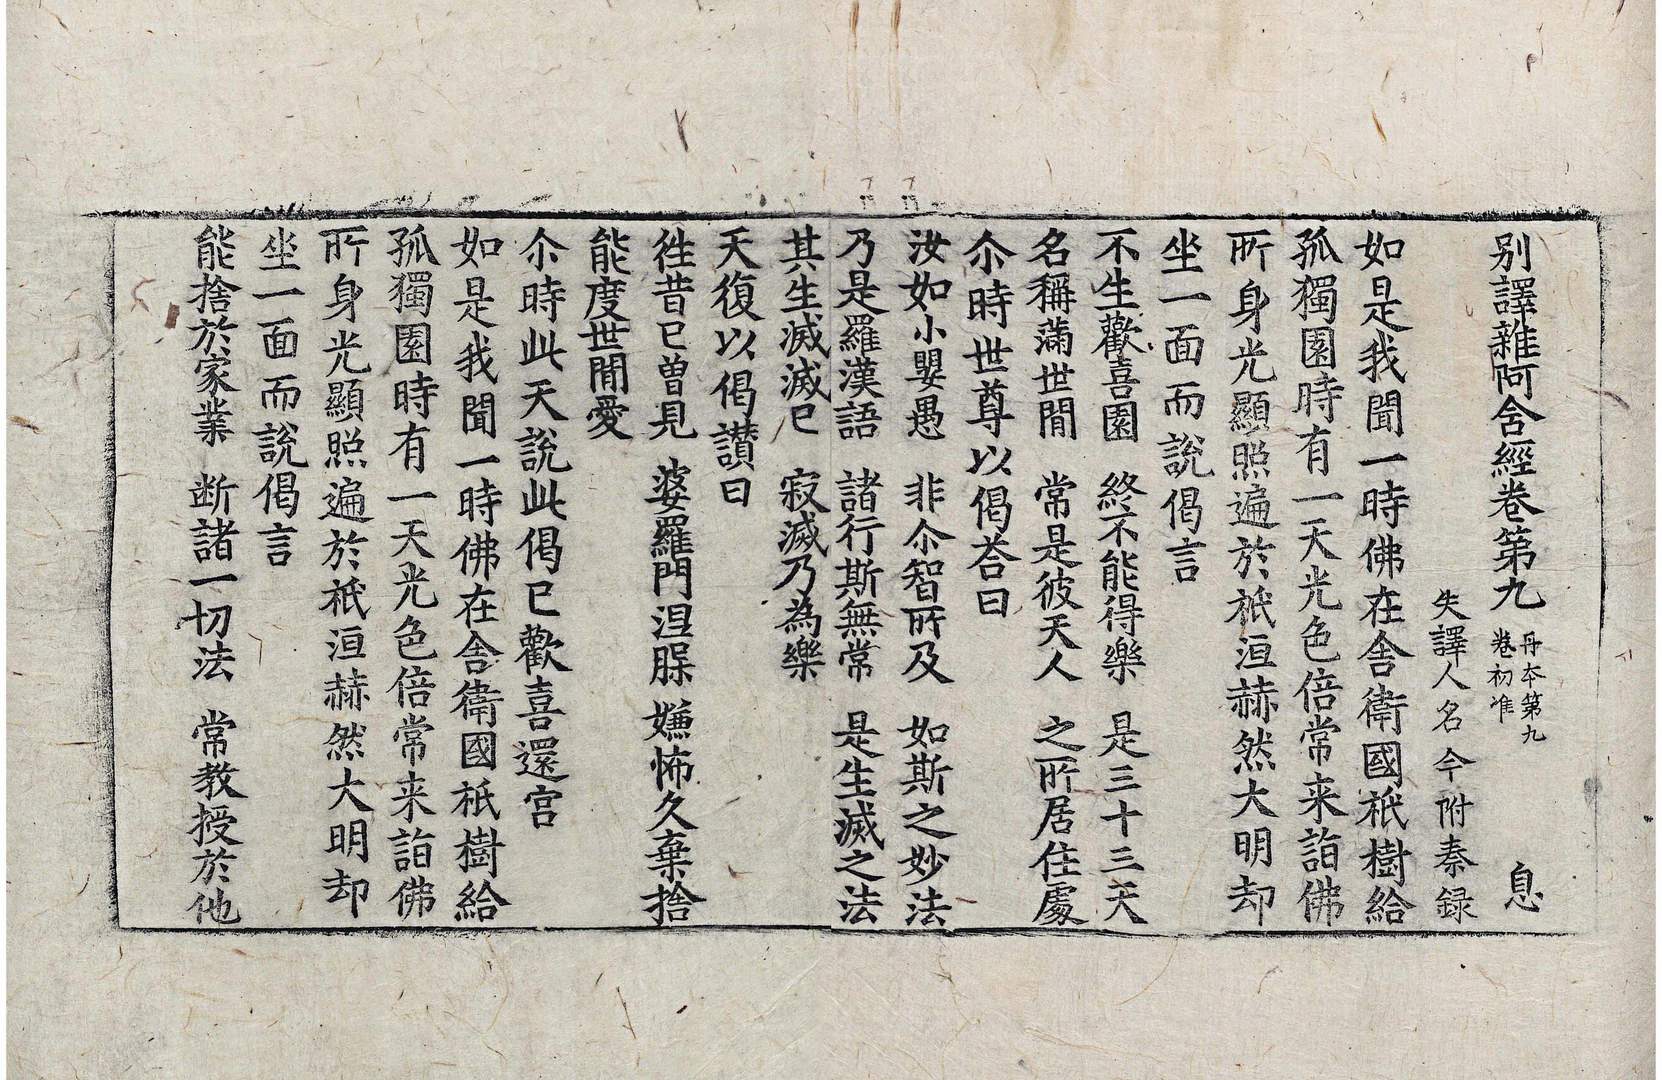 别譯雜阿含經卷第九 丹本第九卷初准 息
失譯人名今附秦録
如是我聞一時佛在舎衛國祇樹給
孤獨園時有一天光色倍常来詣佛
所身光顯照遍於祇洹赫然大明却
坐一面而說偈言
不生歡喜園 終不能得樂 是三十三天
名稱滿世閒 常是彼天人 之所居住處
尒時世尊以偈荅曰
汝如小嬰愚 非尒智所及 如斯之妙法
乃是羅漢語 諸行斯無常 是生滅之法
其生滅滅已 寂滅乃為樂
天復以偈讃曰
徃昔已曽見 婆羅門涅脵 嫌怖久棄捨
能度世閒愛
尒時此天說此偈已歡喜還宫
如是我聞一時佛在舎衛國祇樹給
孤獨園時有一天光色倍常来詣佛
所身光顯照遍於祇洹赫然大明却
坐一面而說偈言
能捨於家業 断諸一切法 常教授於他